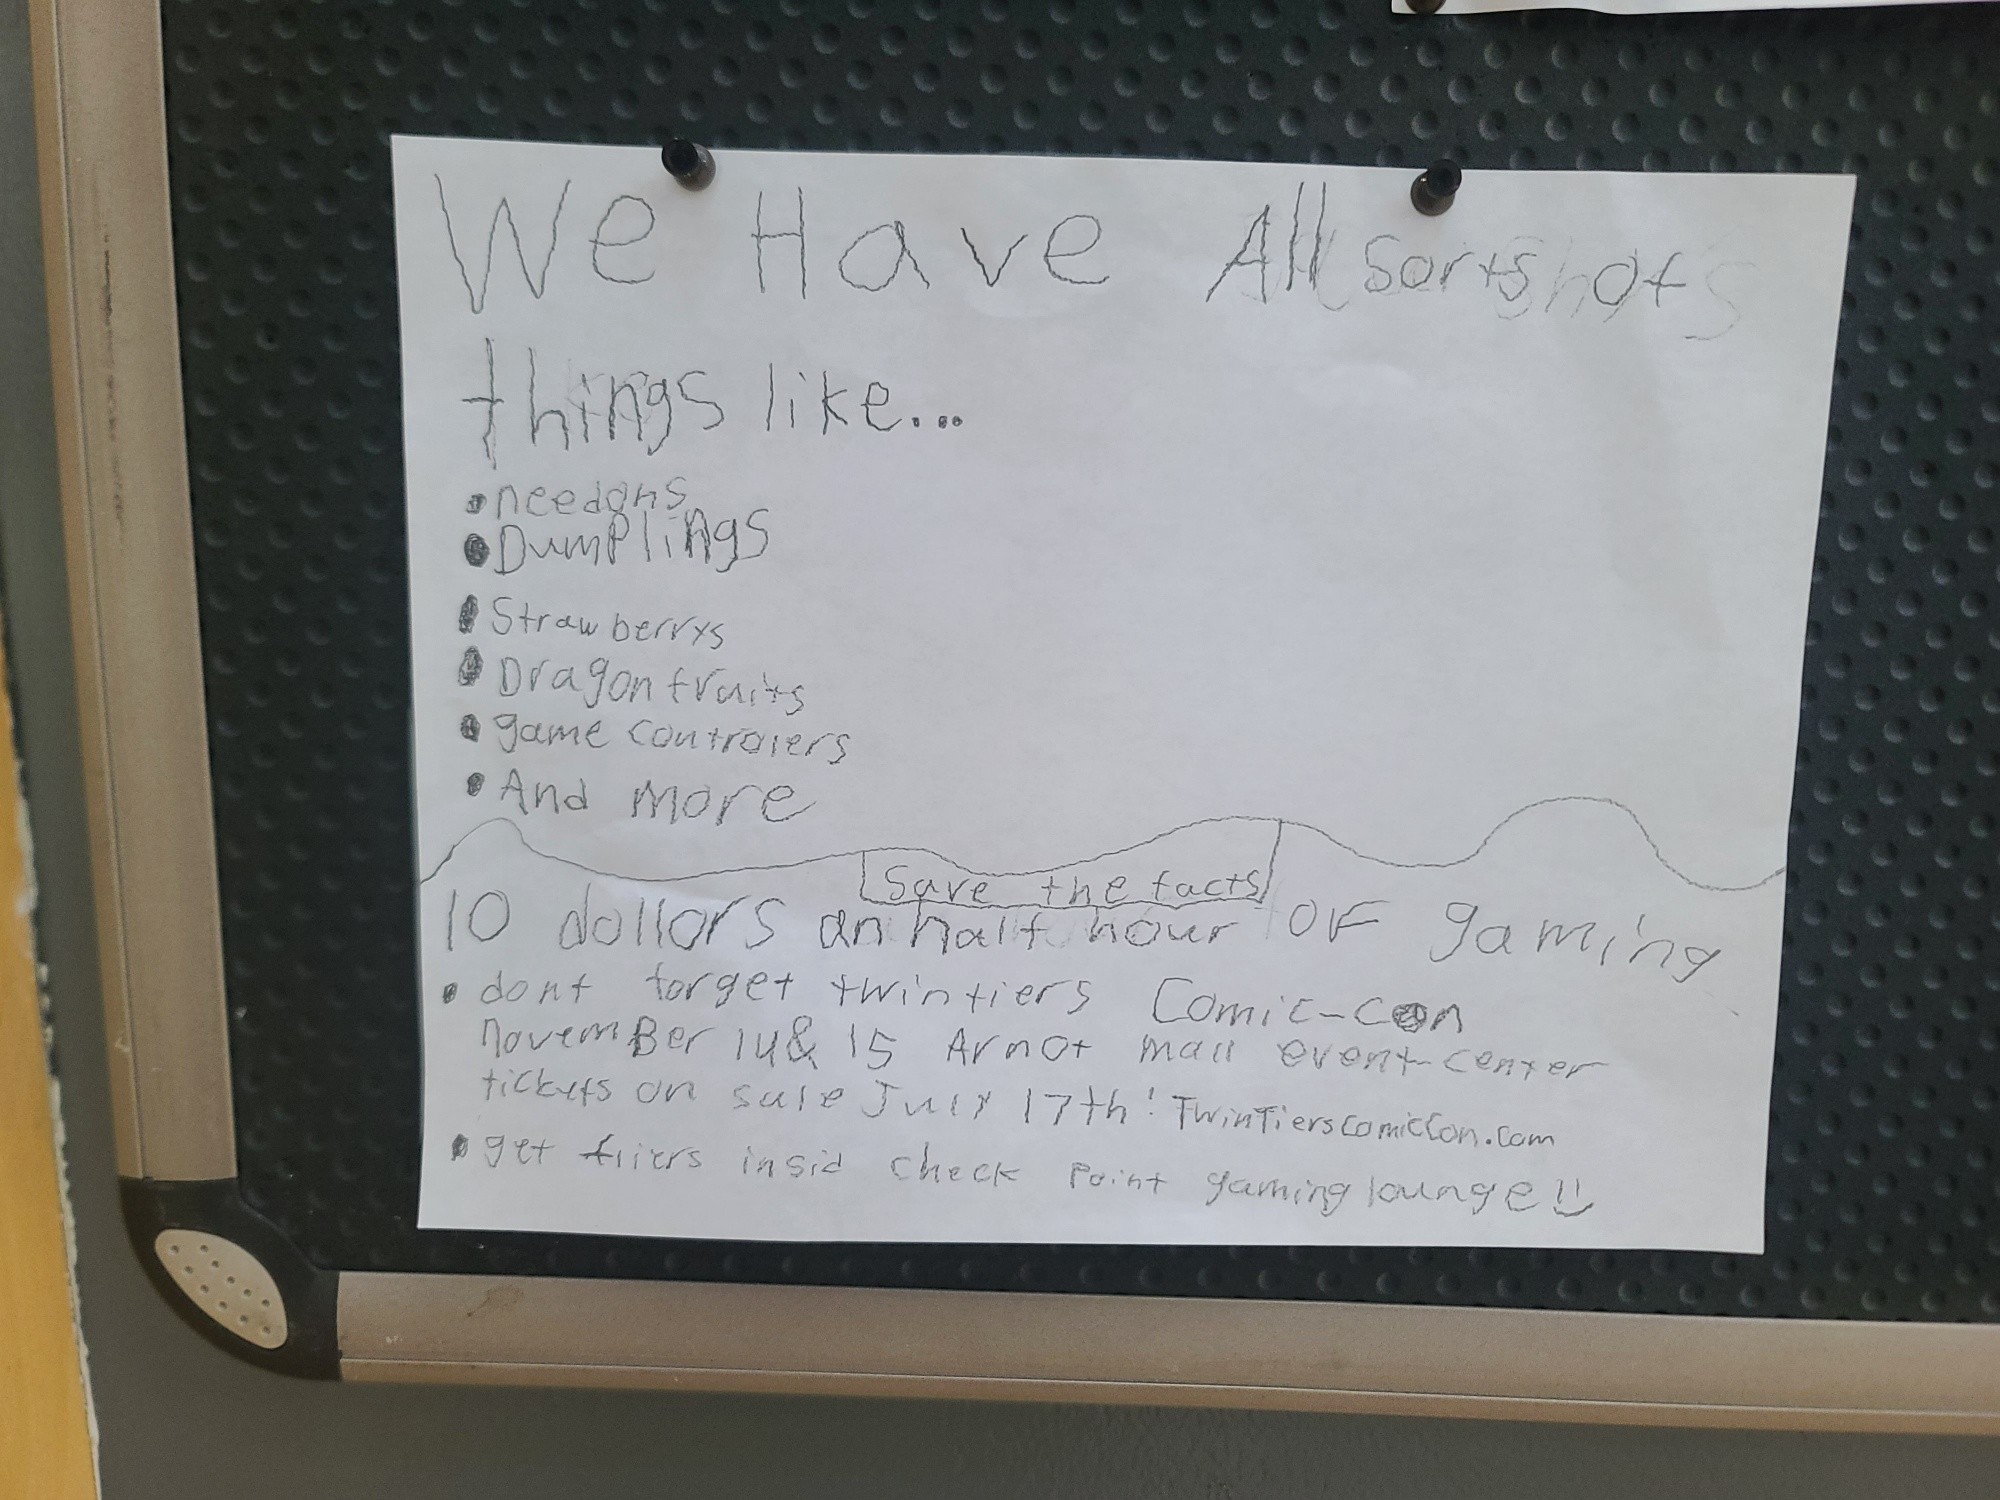 We Have All sorts of
things like...
• needohs
• Dumplings
• Strawberrys
• Dragon fruits
• game controlers
• And more
Save the facts
10 dollors an half hour OF gaming
• dont forget twintiers Comic-con
NovemBer 14 & 15 Arnot mall event-center
tickets on sale July 17th! TwinTiersComicCon.com
• get fliers insid check Point gaming lounge!!